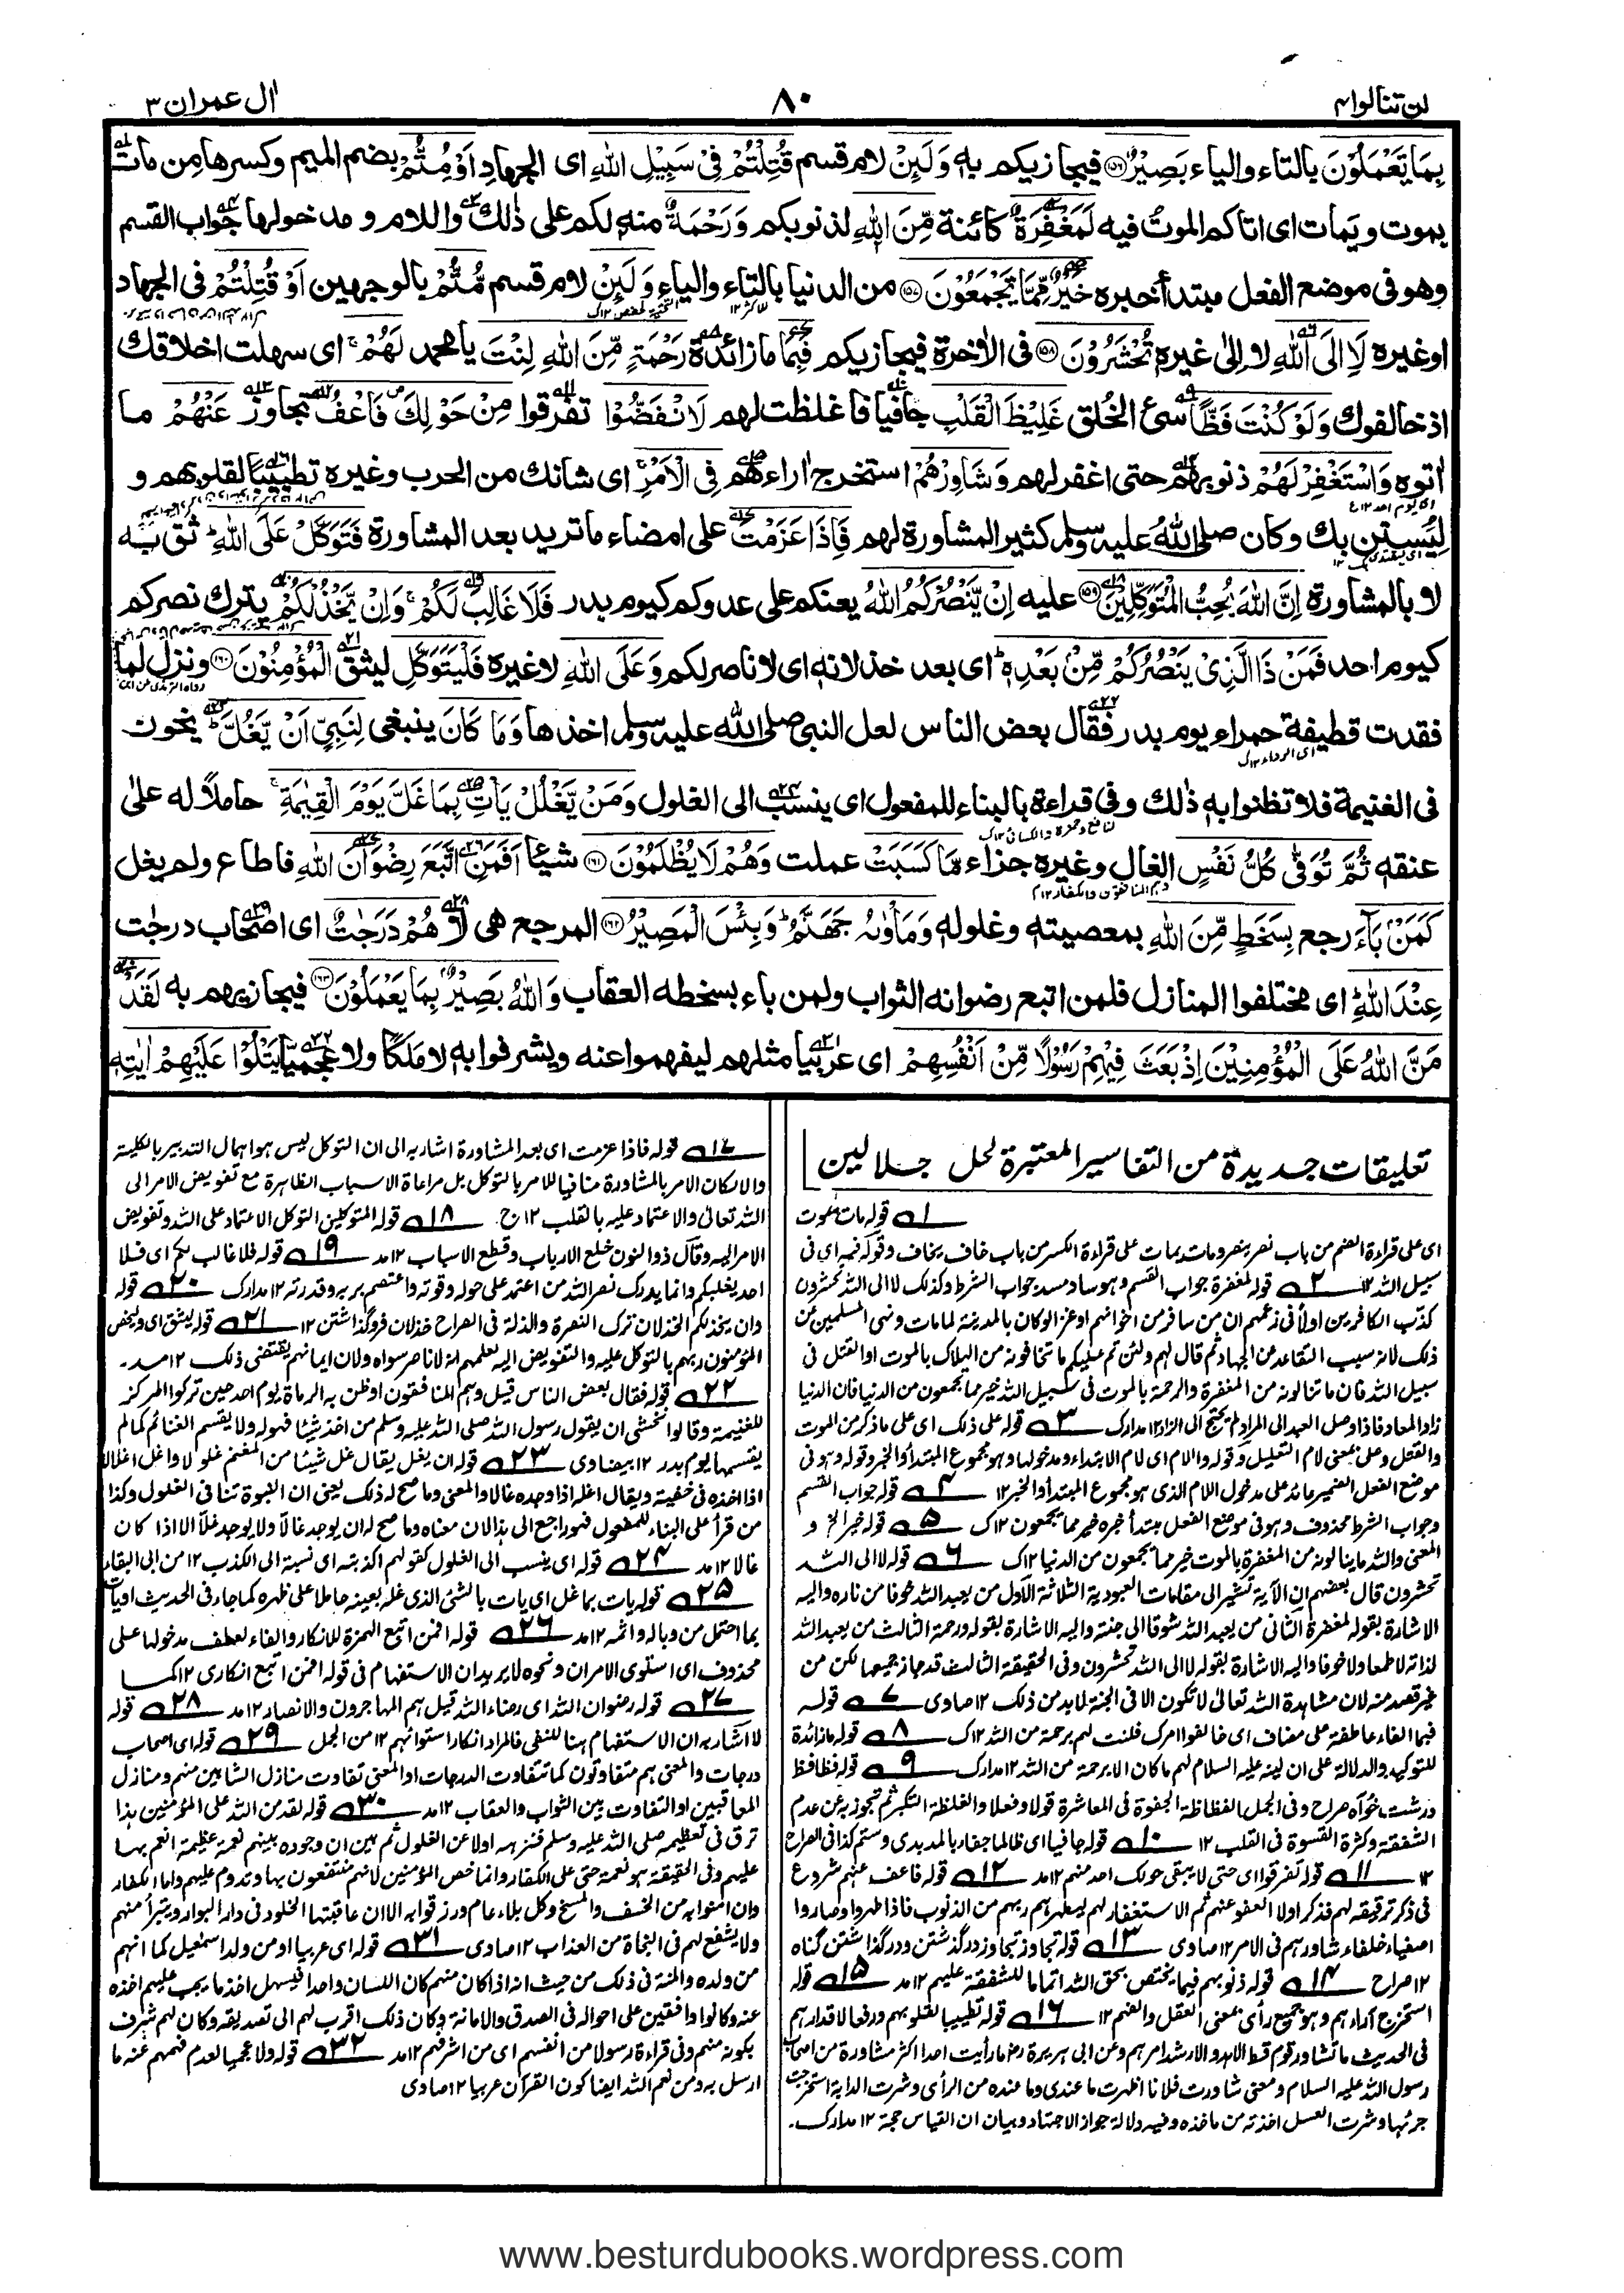 لن تنالوا ٤
٨٠
ال عمران ٣
بِمَا تَعْمَلُوْنَ بالتاء والياء بَصِيْرٌ ﴿١٥٦﴾ فيجازيكم به وَلَئِنْ لام قسم قُتِلْتُمْ فِيْ سَبِيْلِ اللهِ اى الجهاد اَوْ مُتُّمْ بضم الميم وكسرها من مات
يموت ويمات اى اتاكم الموت فيه لَمَغْفِرَةٌ كائنة مِّنَ اللهِ لذنوبكم وَرَحْمَةٌ منه لكم على ذلك واللام و مدخولها جواب القسم
وهو فى موضع الفعل مبتدأ خبره خَيْرٌ مِّمَّا يَجْمَعُوْنَ ﴿١٥٧﴾ من الدنيا بالتاء والياء وَلَئِنْ لام قسم مُّتُّمْ بالوجهين اَوْ قُتِلْتُمْ فى الجهاد
اوغيره لَاِ۠الَى اللهِ لا الى غيره تُحْشَرُوْنَ ﴿١٥٨﴾ فى الأخرة فيجازيكم فَبِمَا ما زائدة رَحْمَةٍ مِّنَ اللهِ لِنْتَ يا محمد لَهُمْ اى سهلت اخلاقك
اذ خالفوك وَلَوْ كُنْتَ فَظًّا سىئ الخُلق غَلِيْظَ الْقَلْبِ جافيا فاغلظت لهم لَانْفَضُّوْا تفرقوا مِنْ حَوْلِكَ فَاعْفُ تجاوز عَنْهُمْ ما
اتوه وَاسْتَغْفِرْ لَهُمْ ذنوبهم حتى اغفر لهم وَشَاوِرْهُمْ استخرج اراءهم فِى الْاَمْرِ اى شانك من الحرب وغيره تطييبًا لقلوبهم و
ليستن بك وكان صلى الله عليه وسلم كثير المشاورة لهم فَاِذَا عَزَمْتَ على امضاء ما تريد بعد المشاورة فَتَوَكَّلْ عَلَى اللهِ ثق به
لا بالمشاورة اِنَّ اللهَ يُحِبُّ الْمُتَوَكِّلِيْنَ ﴿١٥٩﴾ عليه اِنْ يَّنْصُرْكُمُ اللهُ يعنكم على عدوكم كيوم بدر فَلَا غَالِبَ لَكُمْ وَاِنْ يَّخْذُلْكُمْ بترك نصركم
كيوم احد فَمَنْ ذَا الَّذِىْ يَنْصُرُكُمْ مِّنْ بَعْدِهٖ اى بعد خذلانه اى لا ناصر لكم وَعَلَى اللهِ لا غيره فَلْيَتَوَكَّلِ ليثق الْمُؤْمِنُوْنَ ﴿١٦٠﴾ ونزل لما
فقدت قطيفة حمراء يوم بدر فقال بعض الناس لعل النبى صلى الله عليه وسلم اخذها وَمَا كَانَ ينبغى لِنَبِيٍّ اَنْ يَّغُلَّ يخون
فى الغنيمة فلا تظنوا به ذلك وفى قراءة بالبناء للمفعول اى ينسب الى الغلول وَمَنْ يَّغْلُلْ يَأْتِ بِمَا غَلَّ يَوْمَ الْقِيٰمَةِ حاملًا له على
عنقه ثُمَّ تُوَفّٰى كُلُّ نَفْسٍ الغال وغيره جزاء مَّا كَسَبَتْ عملت وَهُمْ لَا يُظْلَمُوْنَ ﴿١٦١﴾ شيئا اَفَمَنِ اتَّبَعَ رِضْوَانَ اللهِ فاطاع ولم يغل
كَمَنْ بَآءَ رجع بِسَخَطٍ مِّنَ اللهِ بمعصيته وغلوله وَمَأْوٰىهُ جَهَنَّمُ وَبِئْسَ الْمَصِيْرُ ﴿١٦٢﴾ المرجع هى لا هُمْ دَرَجٰتٌ اى اصحاب درجت
عِنْدَ اللهِ اى مختلفوا المنازل فلمن اتبع رضوانه الثواب ولمن باء بسخطه العقاب وَاللهُ بَصِيْرٌ بِمَا يَعْمَلُوْنَ ﴿١٦٣﴾ فيجازيهم به لَقَدْ
مَنَّ اللهُ عَلَى الْمُؤْمِنِيْنَ اِذْ بَعَثَ فِيْهِمْ رَسُوْلًا مِّنْ اَنْفُسِهِمْ اى عربيا مثلهم ليفهموا عنه ويشرفوا به لا ملكا ولا عجميا يَتْلُوْا عَلَيْهِمْ اٰيٰتِهٖ
تعليقات جديدة من التفاسير المعتبرة لحل جلالين
١ قوله مات يموت
اى على قراءة الضم من باب نصر ينصر ومات يمات على قراءة الكسر من باب خاف يخاف وقوله فيه اى فى
سبيل الله ١٢ ٢ قوله لمغفرة جواب القسم وهو ساد مسد جواب الشرط وكذلك لا الى الله تحشرون
كذب الكافرين اولا فى زعمهم ان من سافر من اخوانهم او غزا لو كان بالمدينة لما مات ونهى المسلمين عن
ذلك لانه سبب التقاعد عن الجهاد ثم قال لهم ولئن تم عليكم ما تخافونه من الهلاك بالموت او القتل فى
سبيل الله فان ما تنالونه من المغفرة والرحمة بالموت فى سبيل الله خير مما تجمعون من الدنيا فان الدنيا
زاد المعاد فاذا وصل العبد الى المراد لم يحتج الى الزاد ١٢ مدارك ٣ قوله على ذلك اى على ما ذكر من الموت
والقتل وعلى بمعنى لام التعليل وقوله واللام اى لام الابتداء ومدخولها وهو مجموع المبتدأ والخبر وقوله وهو فى
موضع الفعل الضمير عائد على مدخول اللام الذى هو مجموع المبتدأ والخبر ١٢ ٤ قوله جواب القسم
وجواب الشرط محذوف وهو فى موضع الفعل مبتدأ خبره خير مما يجمعون ١٢ ك ٥ قوله خير الخ و
المعنى والله ما ينالونه من المغفرة بالموت خير مما يجمعون من الدنيا ١٢ ك ٦ قوله لا الى الله
تحشرون قال بعضهم ان الآية تشير الى مقامات العبودية الثلاثة الاول من يعبد الله خوفا من ناره واليه
الاشارة بقوله لمغفرة الثانى من يعبد الله شوقا الى جنته واليه الاشارة بقوله ورحمة الثالث من يعبد الله
لذاته لا طمعا ولا خوفا واليه الاشارة بقوله لا الى الله تحشرون وفى الحقيقة الثالث قد حاز جميعها لكن من
غير قصد منه لان مشاهدة الله تعالى لا تكون الا فى الجنة لا بد من ذلك ١٢ صاوى ٧ قوله
فبما الفاء عاطفة على مضاف اى خالفوا امرك فلنت لهم برحمة من الله ١٢ ك ٨ قوله ما زائدة
للتوكيد والدلالة على ان لينه عليه السلام لهم ما كان الا برحمة من الله ١٢ مدارك ٩ قوله فظا فظ
درشت خو آه صراح وفى الجمل الفظاظة الجفوة فى المعاشرة قولا وفعلا والغلظة التكبر ثم تجوز به عن عدم
الشفقة وكثرة القسوة فى القلب ١٢ ١٠ قوله جافيا اى ظالما جفاء بالمد بدى وستم كذا فى الصراح
١٢ ١١ قوله تفرقوا اى حتى لا يبقى حولك احد منهم ١٢ مد ١٢ قوله فاعف عنهم شروع
فى ذكر ترقيقه لهم فذكر اولا العفو عنهم ثم الاستغفار لهم ليطهرهم ربهم من الذنوب فاذا طهروا وصاروا
اصفياء خلفاء شاورهم فى الامر ١٢ صاوى ١٣ قوله تجاوز تجاوز درگذشتن ودرگذاشتن گناه
١٢ صراح ١٤ قوله ذنوبهم فيما يختص بحق الله اتماما للشفقة عليهم ١٢ مد ١٥ قوله
استخرج آراءهم وهو جمع رأى بمعنى العقل والفهم ١٢ ١٦ قوله تطييبا لقلوبهم ورفعا لاقدارهم
فى الحديث ما تشاور قوم قط الا هدوا لارشد امرهم وعن ابى هريرة رض ما رأيت احدا اكثر مشاورة من اصحاب
رسول الله عليه السلام ومعنى شاورت فلانا اظهرت ما عندى وما عنده من الرأى وشرت الدابة استخرجت
جريها وشرت العسل اخذته من مآخذه وفيه دلالة جواز الاجتهاد وبيان ان القياس حجة ١٢ مدارك۔
١٧ قوله فاذا عزمت اى بعد المشاورة اشار به الى ان التوكل ليس هو اهمال التدبير بالكلية
والا لكان الامر بالمشاورة منافيا للامر بالتوكل بل مراعاة الاسباب الظاهرة مع تفويض الامر الى
الله تعالى والاعتماد عليه بالقلب ١٢ ج ١٨ قوله المتوكلين التوكل الاعتماد على الله وتفويض
الامر اليه وقال ذو النون خلع الارباب وقطع الاسباب ١٢ مد ١٩ قوله فلا غالب لكم اى فلا
احد يغلبكم وانما يدرك نصر الله من اعتمد على حوله وقوته واعتصم بربه وقدرته ١٢ مدارك ٢٠ قوله
وان يخذلكم الخذلان ترك النصرة والذلة فى الصراح خذلان فروگذاشتن ١٢ ٢١ قوله ليثق اى وليخص
المؤمنون ربهم بالتوكل عليه والتفويض اليه لعلمهم انه لا ناصر سواه ولان ايمانهم يقتضى ذلك ١٢ مد۔
٢٢ قوله فقال بعض الناس قيل وهم المنافقون او ظن به الرماة يوم احد حين تركوا المركز
للغنيمة وقالوا نخشى ان يقول رسول الله صلى الله عليه وسلم من اخذ شيئا فهو له ولا يقسم الغنائم كما لم
يقسمها يوم بدر ١٢ بيضاوى ٢٣ قوله ان يغل يقال غل شيئا من المغنم غلولا واغل اغلالا
اذا اخذه فى خفية ويقال اغله اذا وجده غالا والمعنى وما صح له ذلك يعنى ان النبوة تنافى الغلول وكذا
من قرأ على البناء للمفعول فهو راجع الى هذا لان معناه وما صح له ان يوجد غالا ولا يوجد غلا الا اذا كان
غالا ١٢ مد ٢٤ قوله اى ينسب الى الغلول كقولهم اكذبته اى نسبة الى الكذب ١٢ من ابى البقاء
٢٥ قوله يات بما غل اى يات بالشئ الذى غله بعينه حاملا على ظهره كما جاء فى الحديث او يات
بما احتمل من وباله واثمه ١٢ مد ٢٦ قوله افمن اتبع الهمزة للانكار والفاء لعطف مدخولها على
محذوف اى استوى الامران ونحوه لا يريد ان الاستفهام فى قوله افمن اتبع انكارى ١٢ كما
٢٧ قوله رضوان الله اى رضاء الله قيل هم المهاجرون والانصار ١٢ مد ٢٨ قوله
لا اشار به ان الاستفهام هنا للنفى فالمراد انكار استوائهم ١٢ من الجمل ٢٩ قوله اى اصحاب
درجات والمعنى هم متفاوتون كما تتفاوت الدرجات او المعنى تفاوت منازل الثابين منهم ومنازل
المعاقبين او التفاوت بين الثواب والعقاب ١٢ مد ٣٠ قوله لقد من الله على المؤمنين هذا
ترق فى تعظيمه صلى الله عليه وسلم فنزهه اولا عن الغلول ثم بين ان وجوده بينهم نعمة عظيمة انعم بها
عليهم وفى الحقيقة هو نعمة حتى على الكفار وانما خص المؤمنين لانهم منتفعون بها وتدوم عليهم واما الكفار
وان امنوا به من الخسف والمسخ وكل بلاء عام ورزقوا به الا ان عاقبتها الخلود فى دار البوار ويتبرأ منهم
ولا يشفع لهم فى النجاة من العذاب ١٢ صاوى ٣١ قوله اى عربيا او من ولد اسمعيل كما انهم
من ولده والمنة فى ذلك من حيث انه اذا كان منهم كان اللسان واحدا فيسهل اخذ ما يجب عليهم اخذه
عنه وكانوا واقفين على احواله فى الصدق والامانة وكان ذلك اقرب لهم الى تصديقه وكان لهم شرف
بكونه منهم وفى قراءة رسولا من انفسهم اى من اشرفهم ١٢ مد ٣٢ قوله ولا عجميا لعدم فهمهم عنه ما
ارسل به ومن نعم الله ايضا كون القرآن عربيا ١٢ صاوى
www.besturdubooks.wordpress.com